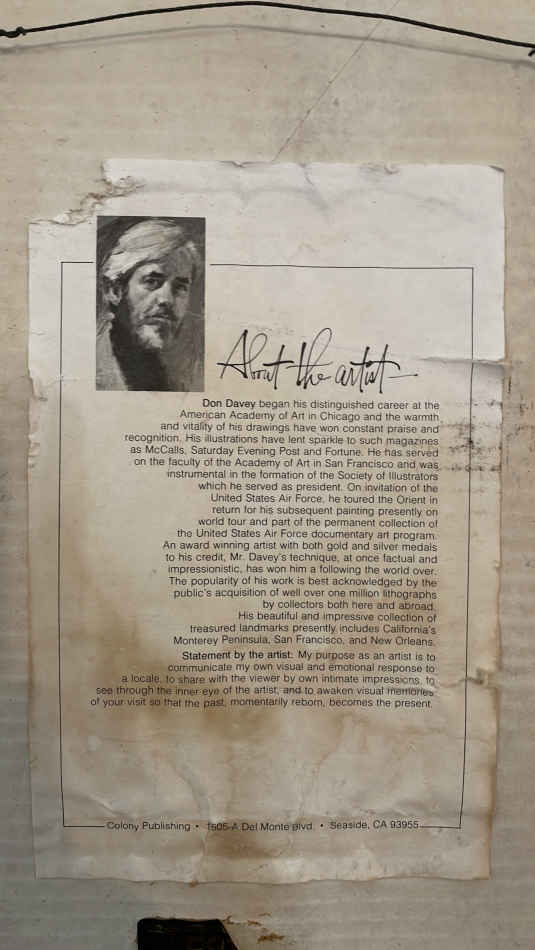 About the artist
Don Davey began his distinguished career at the
American Academy of Art in Chicago and the warmth
and vitality of his drawings have won constant praise and
recognition. His illustrations have lent sparkle to such magazines
as McCalls, Saturday Evening Post and Fortune. He has served
on the faculty of the Academy of Art in San Francisco and was
instrumental in the formation of the Society of Illustrators
which he served as president. On invitation of the
United States Air Force, he toured the Orient in
return for his subsequent painting presently on
world tour and part of the permanent collection of
the United States Air Force documentary art program.
An award winning artist with both gold and silver medals
to his credit, Mr. Davey's technique, at once factual and
impressionistic, has won him a following the world over.
The popularity of his work is best acknowledged by the
public's acquisition of well over one million lithographs
by collectors both here and abroad.
His beautiful and impressive collection of
treasured landmarks presently includes California's
Monterey Peninsula, San Francisco, and New Orleans.
Statement by the artist: My purpose as an artist is to
communicate my own visual and emotional response to
a locale, to share with the viewer by own intimate impressions, to
see through the inner eye of the artist, and to awaken visual memories
of your visit so that the past, momentarily reborn, becomes the present.
Colony Publishing • 1605-A Del Monte Blvd. • Seaside, CA 93955